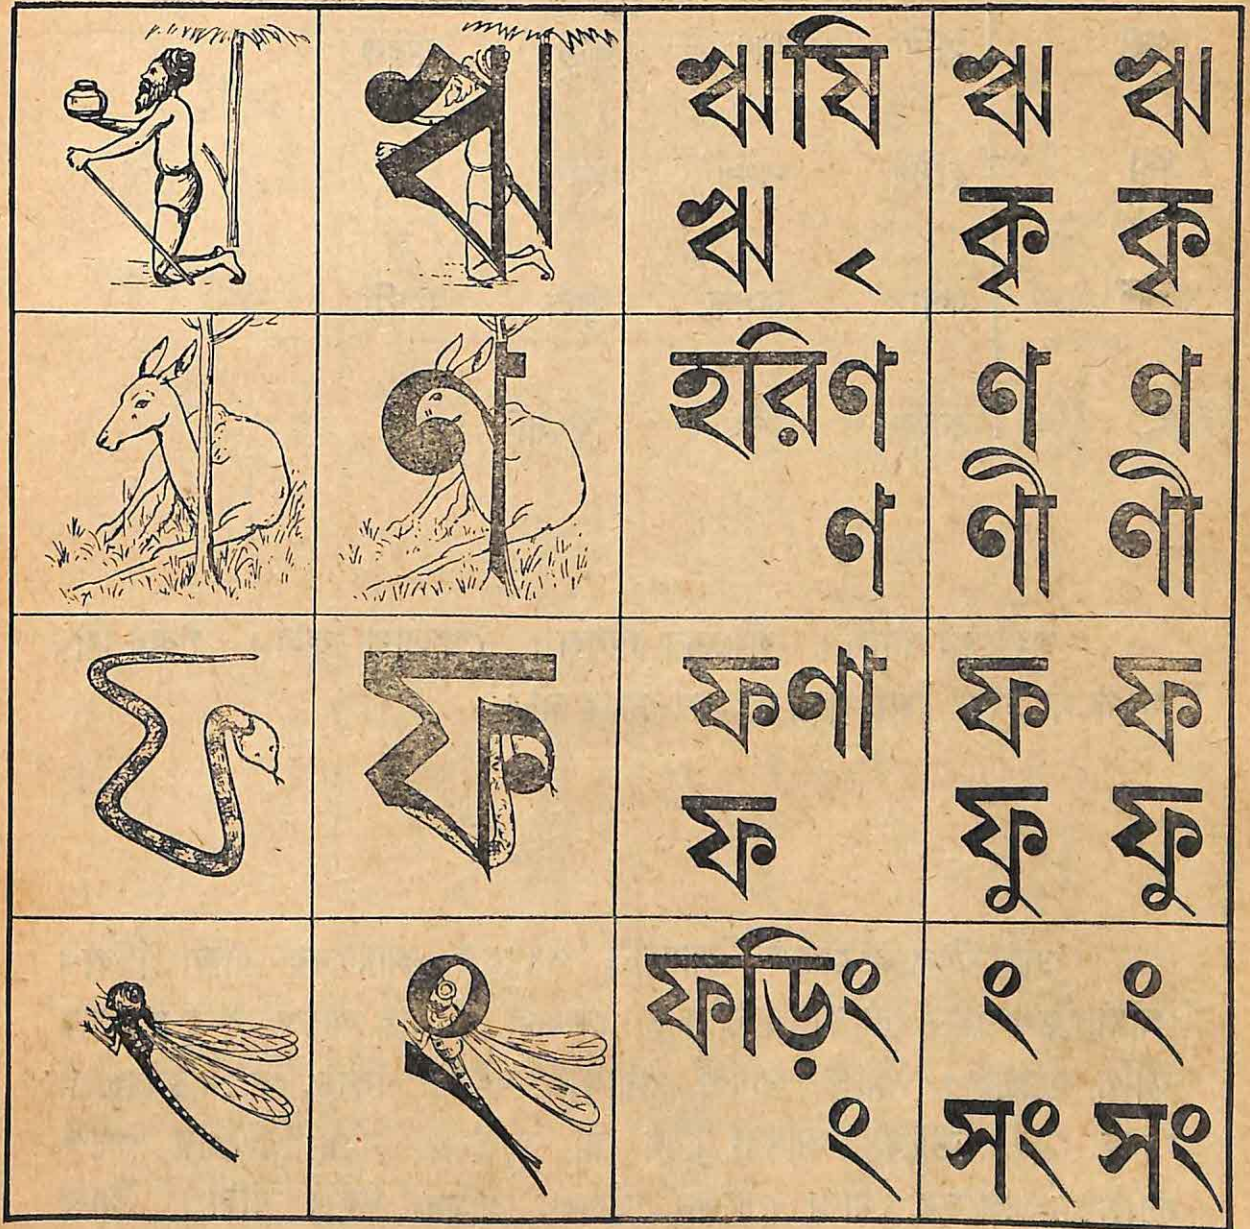 ঋষি
ঋ ৃ
ঋ ঋ
কৃ কৃ
হরিণ
ণ
ণ ণ
ণী ণী
ফণা
ফ
ফ ফ
ফু ফু
ফড়িং
ং
ং ং
সং সং